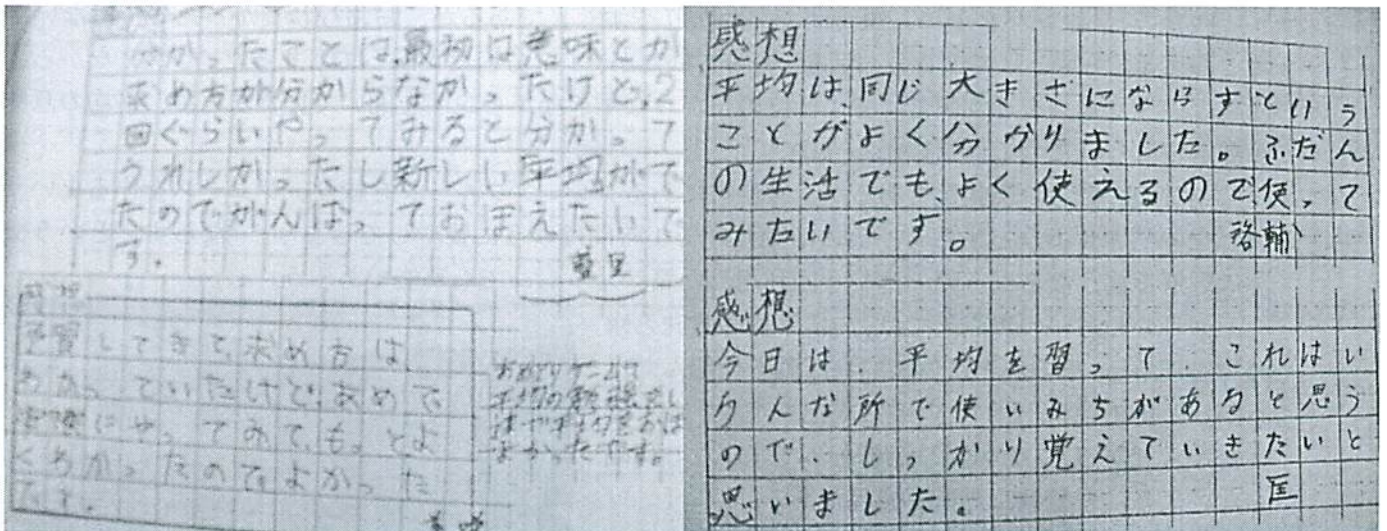 わかったことは、最初は意味とか
求め方が分からなかったけど、2
回ぐらいやってみると分かって
うれしかったし新しい平均がで
たのでがんばっておぼえたいで
す。
予習してきて、求め方は
わかっていたけど、あめで
実際にやってみて、もっとよ
くわかったのでよかった
です。
感想
平均は、同じ大きさにならすという
ことがよく分かりました。ふだん
の生活でも、よく使えるので使って
みたいです。
啓輔
感想
今日は、平均を習って、これはい
ろんな所で使いみちがあると思う
ので、しっかり覚えていきたいと
思いました。
匡